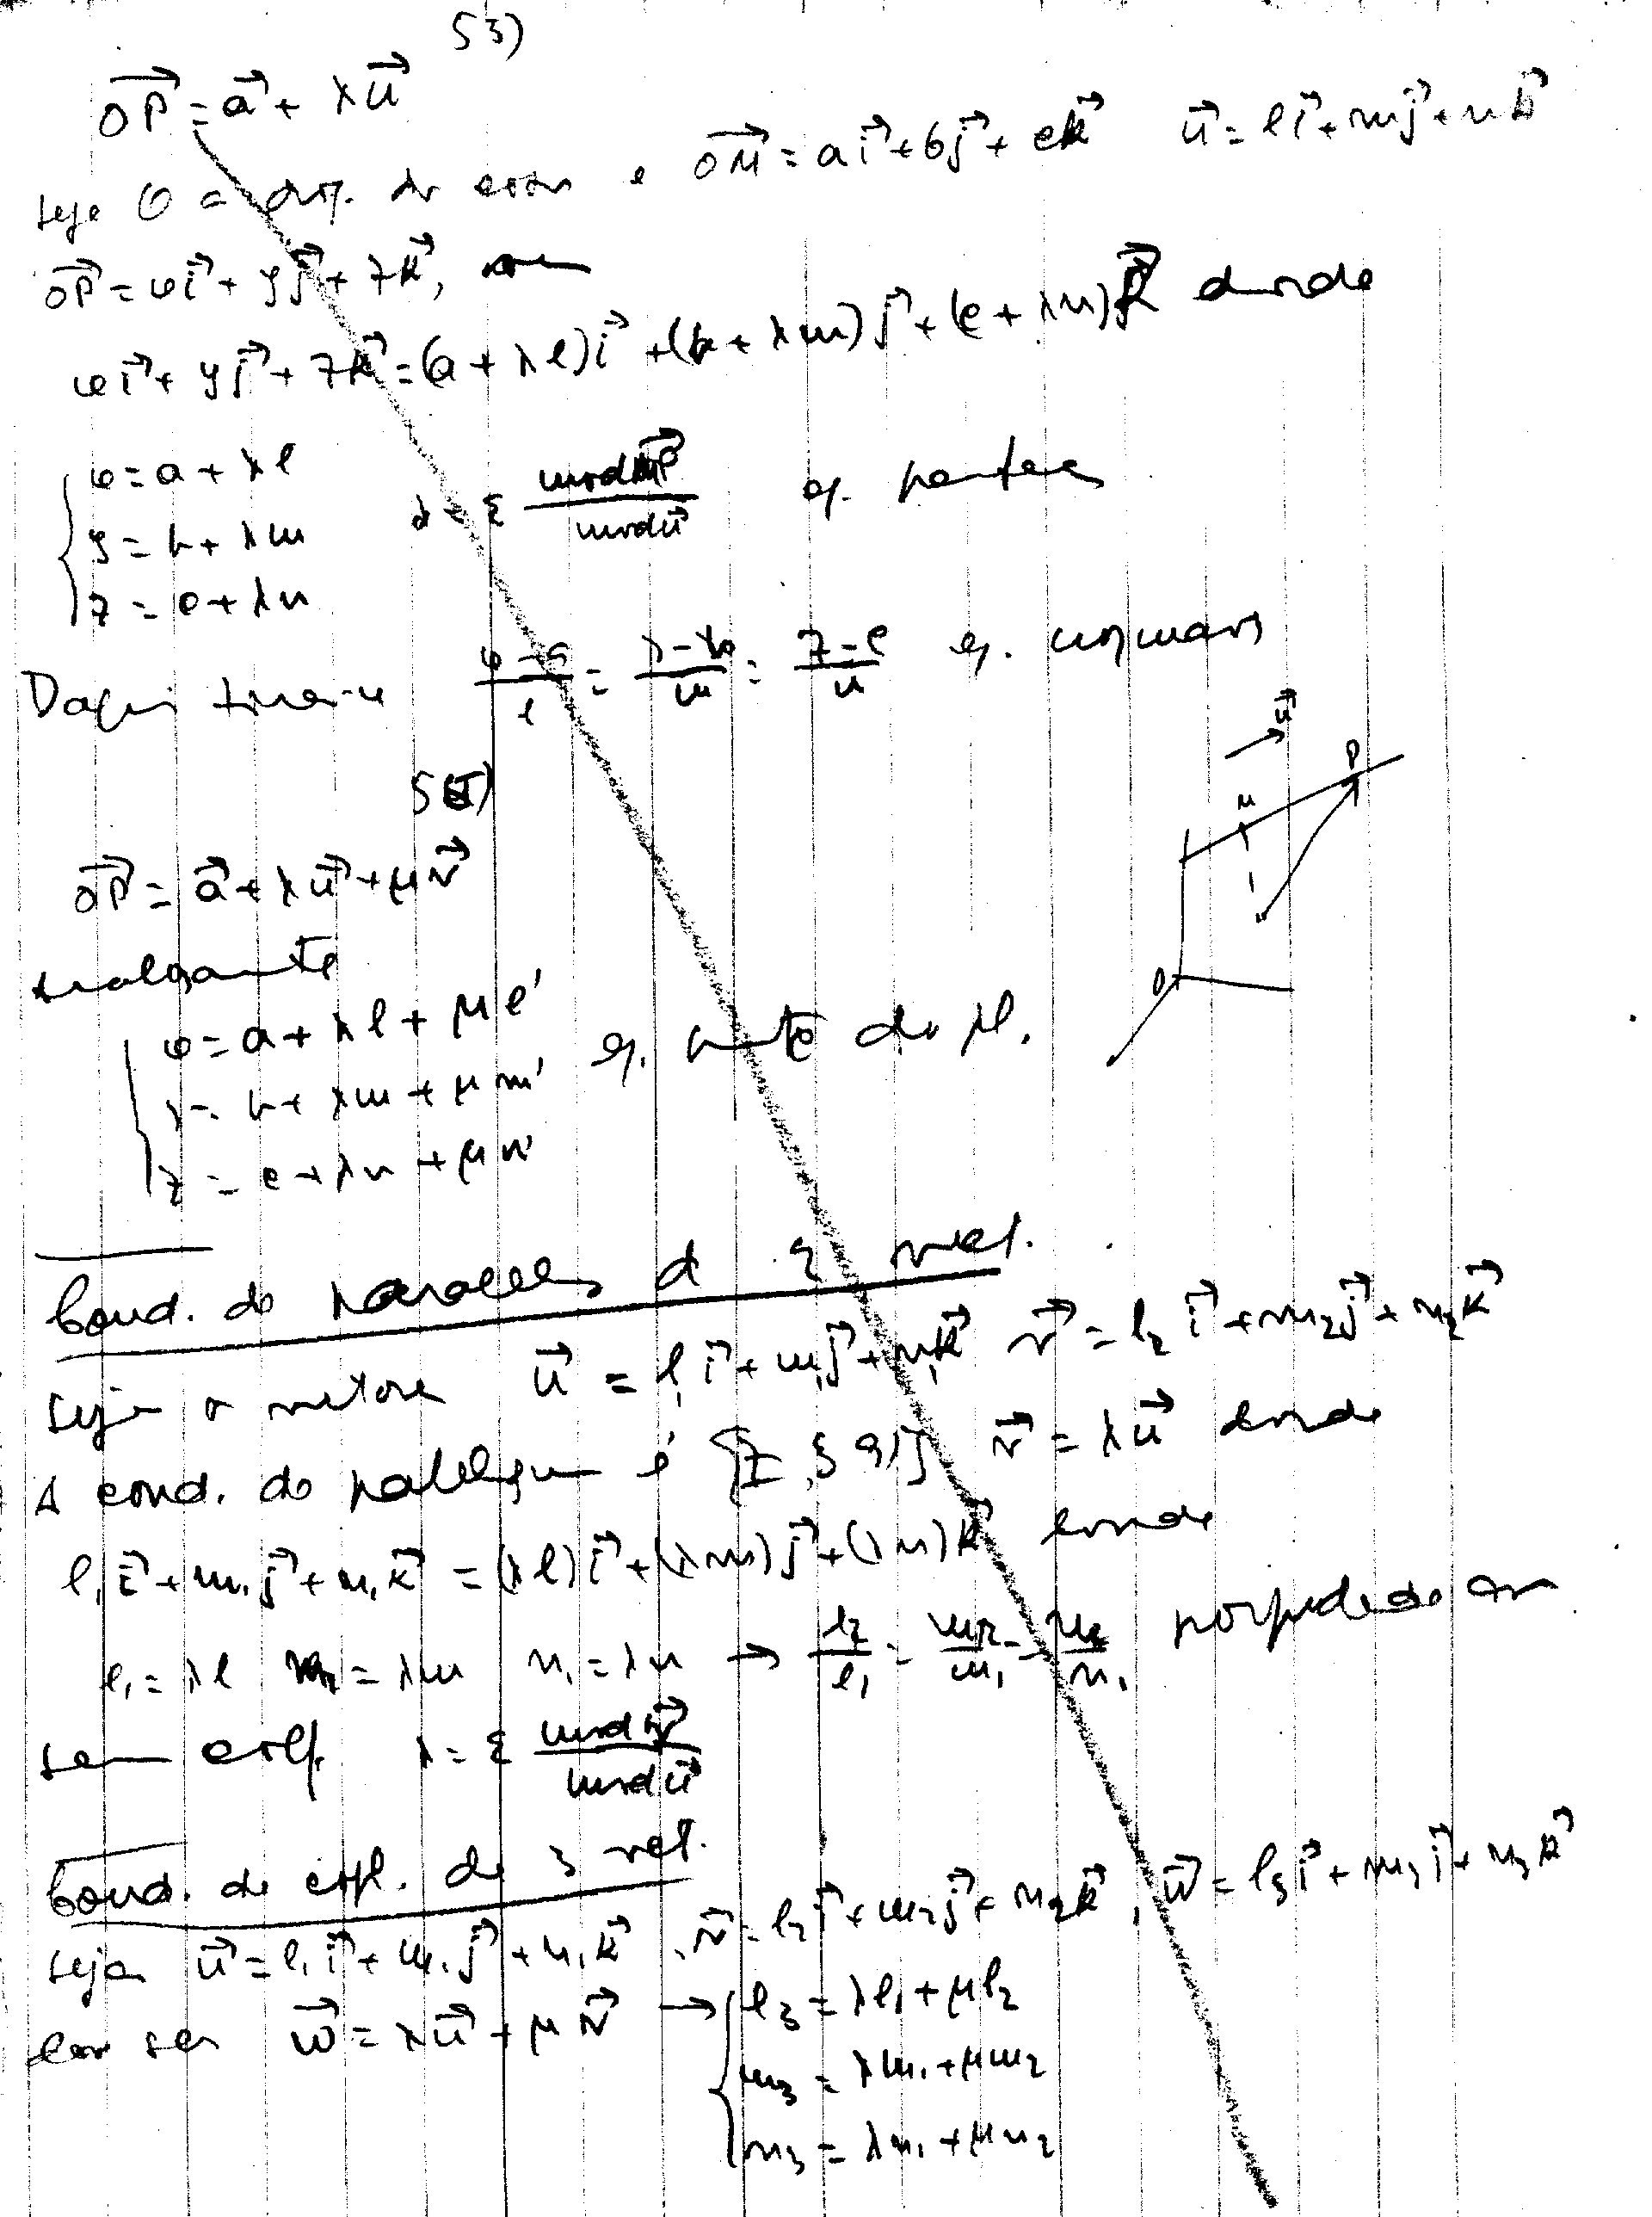 53)
$\vec{OP} = \vec{a} + \lambda\vec{u}$
seja O = orig. do e $\vec{OM} = a\vec{i} + b\vec{j} + c\vec{k}$ $\vec{u} = l\vec{i} + m\vec{j} + n\vec{k}$
$\vec{OP} = x\vec{i} + y\vec{j} + z\vec{k}$,
$x\vec{i} + y\vec{j} + z\vec{k} = (a + \lambda l)\vec{i} + (b + \lambda m)\vec{j} + (c + \lambda n)\vec{k}$ donde
$x = a + \lambda l$
$y = b + \lambda m$ $\lambda = \varepsilon \frac{mod \vec{MP}}{mod \vec{u}}$ eq.
$z = c + \lambda n$
Daqui tira-se $\frac{x-a}{l} = \frac{y-b}{m} = \frac{z-c}{n}$ eq. normais
$\vec{u}$
P
M
O
$\vec{OP} = \vec{a} + \lambda\vec{u} + \mu\vec{v}$
analogamente
$x = a + \lambda l + \mu l'$
$y = b + \lambda m + \mu m'$ eq. do pl.
$z = c + \lambda n + \mu n'$
Cond. de paralel. de 2 vect.
Sejam os vetores $\vec{u} = l_1\vec{i} + m_1\vec{j} + n_1\vec{k}$ $\vec{v} = l_2\vec{i} + m_2\vec{j} + n_2\vec{k}$
A cond. de é [I, § 9)] $\vec{v} = \lambda\vec{u}$ donde
$l_1\vec{i} + m_1\vec{j} + n_1\vec{k} = (\lambda l)\vec{i} + (\lambda m)\vec{j} + (\lambda n)\vec{k}$ e onde
$l_1 = \lambda l$ $m_1 = \lambda m$ $n_1 = \lambda n$ → $\frac{l_2}{l_1} = \frac{m_2}{m_1} = \frac{n_2}{n_1}$
$\lambda = \varepsilon \frac{mod \vec{v}}{mod \vec{u}}$
Cond. de copl. de 3 vect.
Sejam $\vec{u} = l_1\vec{i} + m_1\vec{j} + n_1\vec{k}$, $\vec{v} = l_2\vec{i} + m_2\vec{j} + n_2\vec{k}$, $\vec{w} = l_3\vec{i} + m_3\vec{j} + n_3\vec{k}$
deve ser $\vec{w} = \lambda\vec{u} + \mu\vec{v}$ → $l_3 = \lambda l_1 + \mu l_2$
$m_3 = \lambda m_1 + \mu m_2$
$n_3 = \lambda n_1 + \mu n_2$